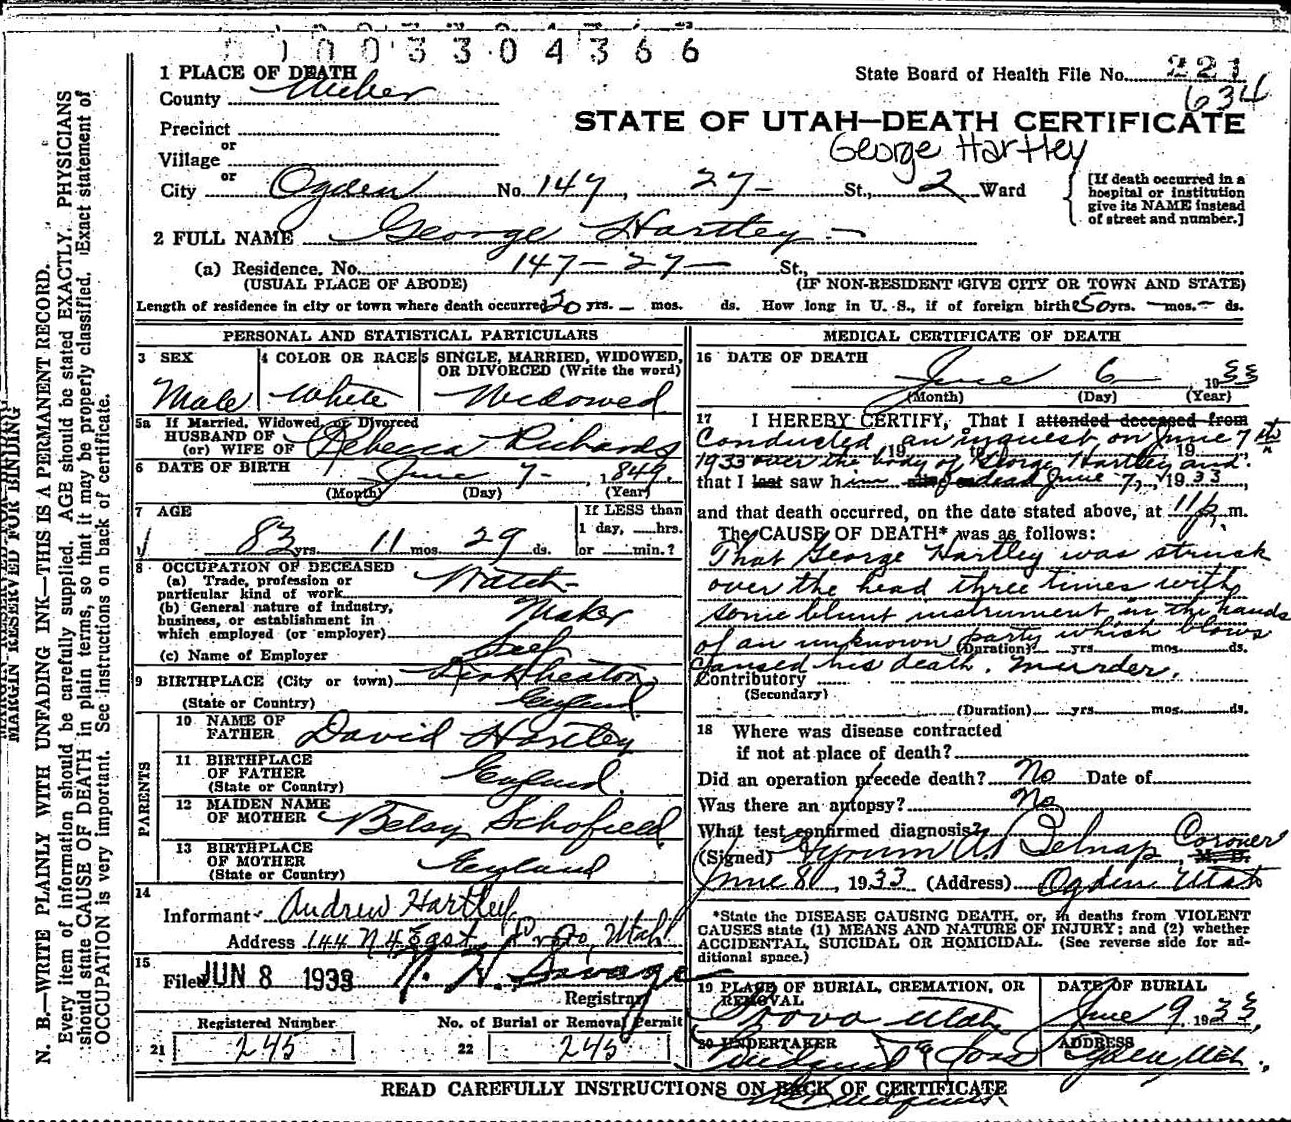 0 1 0 0 3 3 0 4 3 6 6
1 PLACE OF DEATH
County Weber
State Board of Health File No. 221
634
Precinct
STATE OF UTAH—DEATH CERTIFICATE
or
Village
George Hartley
or
City Ogden No. 147, 27- St., 2 Ward
[If death occurred in a hospital or institution give its NAME instead of street and number.]
2 FULL NAME George Hartley
(a) Residence. No. 147-27- St.,
(USUAL PLACE OF ABODE) (IF NON-RESIDENT GIVE CITY OR TOWN AND STATE)
Length of residence in city or town where death occurred 30 yrs. - mos. ds. How long in U. S., if of foreign birth 50 yrs. - mos. - ds.
PERSONAL AND STATISTICAL PARTICULARS
3 SEX
Male
4 COLOR OR RACE
White
5 SINGLE, MARRIED, WIDOWED, OR DIVORCED (Write the word)
Widowed
5a If Married, Widowed, or Divorced
HUSBAND OF
(or) WIFE OF Rebecca Richards
6 DATE OF BIRTH June 7- 1849
(Month) (Day) (Year)
7 AGE
83 yrs. 11 mos. 29 ds.
If LESS than 1 day, hrs. or min.?
8 OCCUPATION OF DECEASED
(a) Trade, profession or particular kind of work Watch-
(b) General nature of industry, business, or establishment in which employed (or employer) Maker
(c) Name of Employer Self
9 BIRTHPLACE (City or town)
(State or Country) England
PARENTS
10 NAME OF FATHER David Hartley
11 BIRTHPLACE OF FATHER (State or Country) England
12 MAIDEN NAME OF MOTHER Betsy Schofield
13 BIRTHPLACE OF MOTHER (State or Country) England
14
Informant Andrew Hartley
Address 144 N 4 Provo, Utah
15
Filed JUN 8 1933 Savage
Registrar
Registered Number
21 245
No. of Burial or Removal Permit
22 245
MEDICAL CERTIFICATE OF DEATH
16 DATE OF DEATH
June 6 1933
(Month) (Day) (Year)
17 I HEREBY CERTIFY, That I attended deceased from
Conducted an inquest on June 7th
19 to 19
1933 over the body of George Hartley and
that I last saw him alive on dead June 7, 1933,
and that death occurred, on the date stated above, at 11 p. m.
The CAUSE OF DEATH* was as follows:
That George Hartley was struck
over the head three times with
some blunt instrument in the hands
of an unknown party which blows
(Duration) yrs. mos. ds.
caused his death. Murder.
Contributory
(Secondary)
(Duration) yrs. mos. ds.
18 Where was disease contracted
if not at place of death?
Did an operation precede death? No Date of
Was there an autopsy? No
What test confirmed diagnosis?
(Signed) Hyrum A. Belnap Coroner, M. D.
June 8, 1933 (Address) Ogden Utah
*State the DISEASE CAUSING DEATH, or, in deaths from VIOLENT
CAUSES state (1) MEANS AND NATURE OF INJURY; and (2) whether
ACCIDENTAL, SUICIDAL OR HOMICIDAL. (See reverse side for ad-
ditional space.)
19 PLACE OF BURIAL, CREMATION, OR REMOVAL
Provo Utah
DATE OF BURIAL
June 9, 1933
20 UNDERTAKER
Lindquist & Sons
ADDRESS
Ogden Utah.
READ CAREFULLY INSTRUCTIONS ON BACK OF CERTIFICATE
MARGIN RESERVED FOR BINDING
N. B.—WRITE PLAINLY WITH UNFADING INK—THIS IS A PERMANENT RECORD.
Every item of information should be carefully supplied. AGE should be stated EXACTLY. PHYSICIANS
should state CAUSE OF DEATH in plain terms, so that it may be properly classified. Exact statement of
OCCUPATION is very important. See instructions on back of certificate.